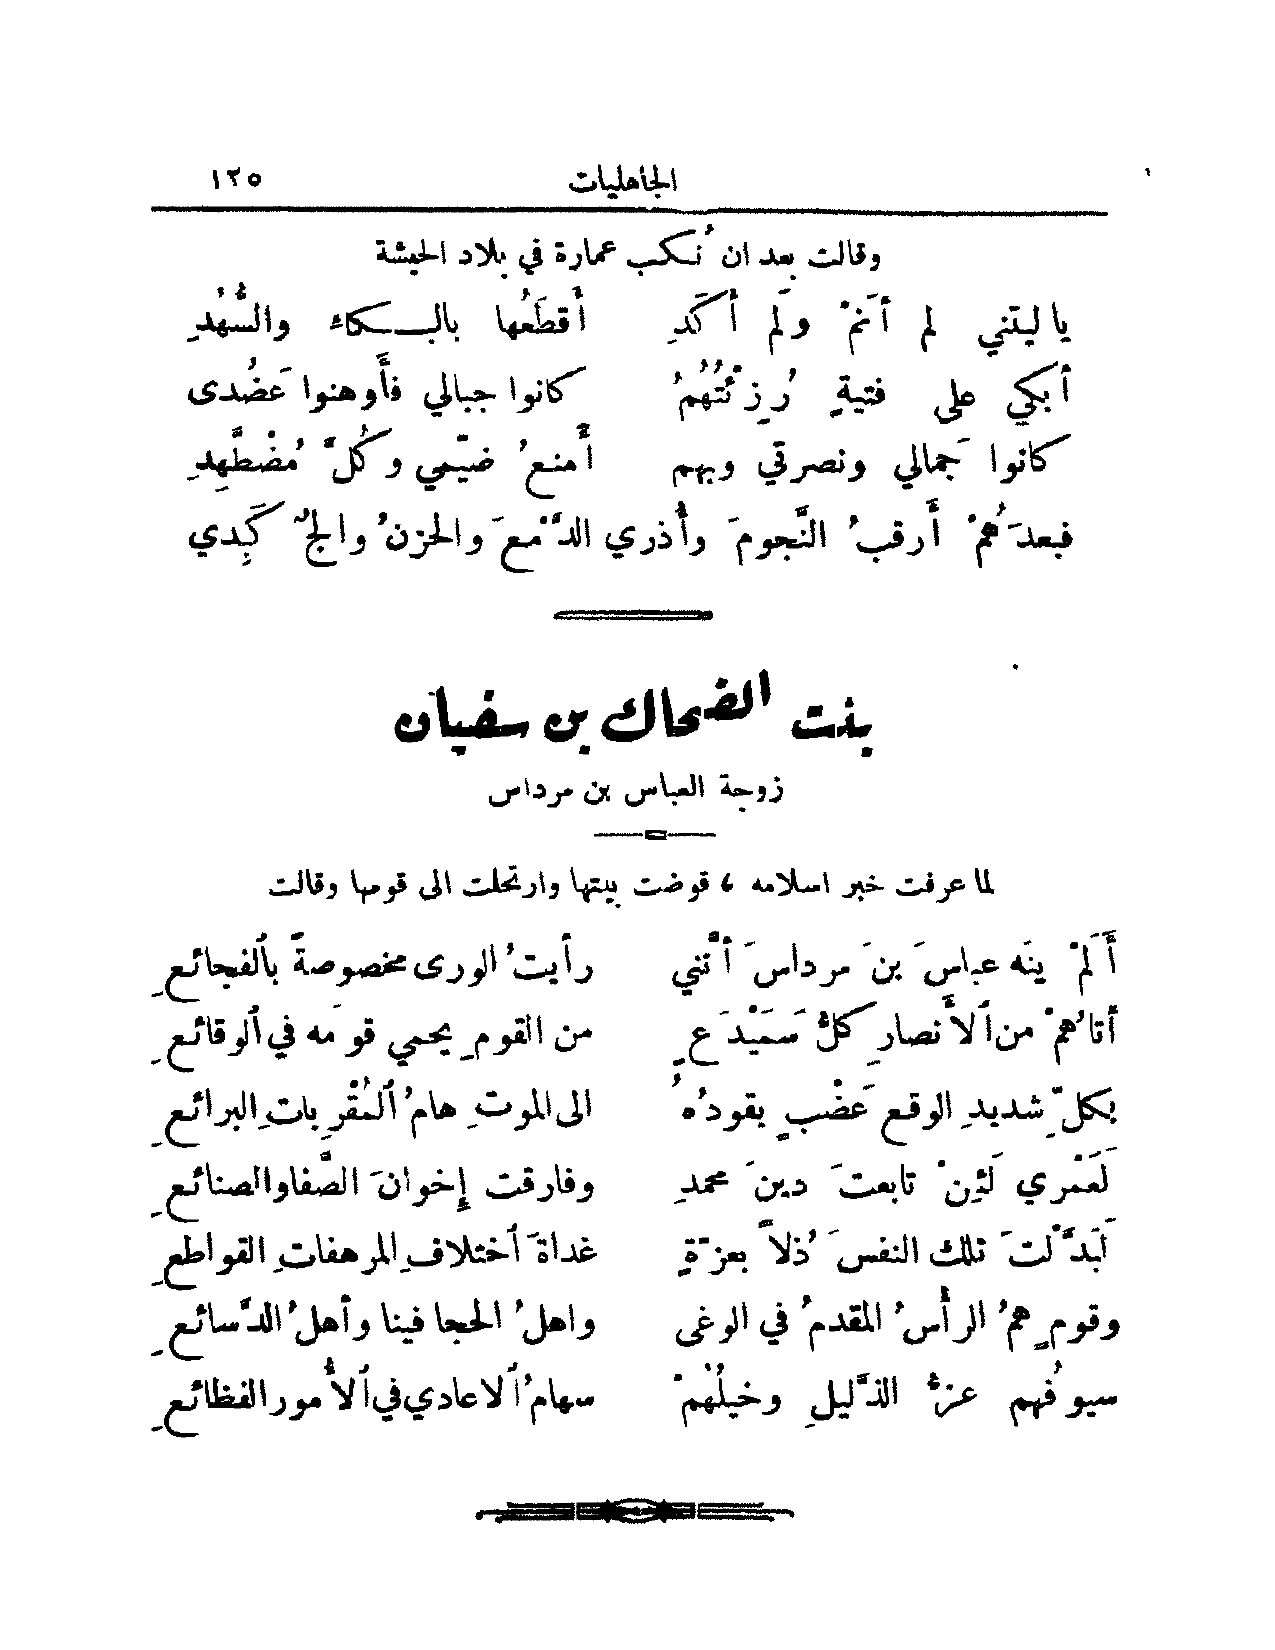 الجاهليات ١٢٥
وقالت بعد ان نُكب عمارة في بلاد الحبشة
يا ليتني لم أَنَمْ ولَم أكَدِ أُقطّعُها بالبكاء والسُّهُدِ
أبكي على فتيةٍ رُزِئْتُهُمُ كانوا جبالي فأَوهنوا عَضُدى
كانوا جَمالي ونصرتي وبهم أَمنعُ ضيمي وكُلَّ مُضْطَّهِدِ
فبعدَهُمْ أَرقبُ النَّجومَ وأُذري الدَّمْعَ والحزنُ والجٌ كَبِدي
بنت الضحاك بن سفيان
زوجة العباس بن مرداس
لما عرفت خبر اسلامه ، قوضت بيتها وارتحلت الى قومها وقالت
أَلَمْ ينهَ عباسَ بنَ مرداسَ أنَّني رأَيتُ الورى مخصوصةً بٱلفجائعِ
أتاهُمْ من ٱلأَنصارِ كلُّ سَمَيْدَعٍ من القومِ يحمي قومَه في ٱلوقائعِ
بكلّ شديدِ الوقع عَضْبٍ يقودُهُ الى الموتِ هامُ ٱلمُقْرِباتِ البرائعِ
لَعَمْري لَئِنْ تابعتَ دينَ محمدِ وفارقتَ إِخوانَ الصَّفا والصنائعِ
لَبَدَّلتَ تلك النفسَ ذُلاًّ بعزةٍ غداةَ ٱختلافِ المرهفاتِ القواطعِ
وقومٍ همُ الرأسُ المقدمُ في الوغى واهلُ الحجا فينا وأهلُ الدَّسائعِ
سيوفُهم عزُّ الذَّليلِ وخيلُهمْ سهامُ ٱلاعادي في ٱلأُمور الفظائعِ